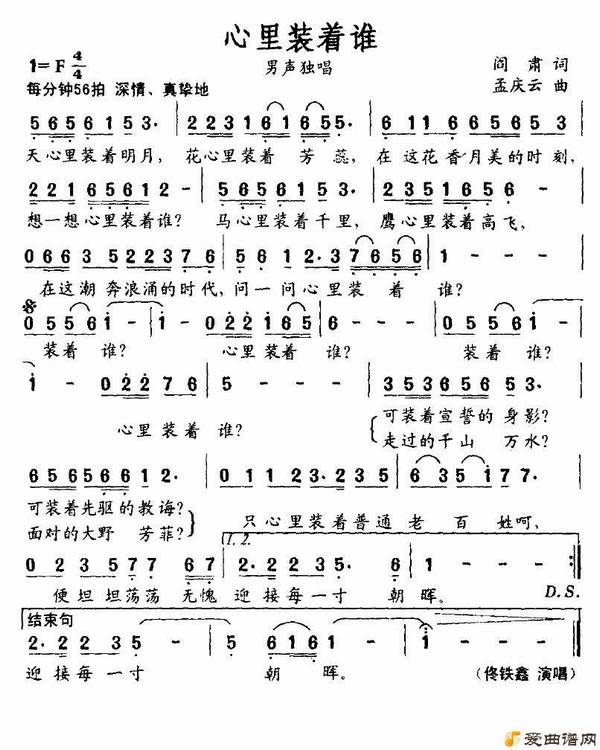 心里装着谁
1=F 4/4
男声独唱
阎肃词
每分钟56拍 深情、真挚地
孟庆云 曲
5 6 5 6 1 5 3. | 2 2 3 1 6 1 6 5 5. | 6 1 1 6 6 5 6 5 3 |
天心里装着明月, 花心里装着 芳蕊, 在这花香月美的时刻,
2 2 1 6 5 6 1 2 | 5 5 3 5 6 1 5 3. | 2 2 3 2 1 6 5 6 |
想一想心里装着谁? 马心里装着千里, 鹰心里装着高飞,
0 6 6 3 5 2 2 3 7 6 | 5 6 1 2. 3 7 6 5 6 | 1 - - - |
在这潮奔浪涌的时代,问一问心里装 着 谁?
0 5 5 6 1 - | 1 - 1 - | 0 2 2 1 2 1 6 5 | 5 - - - | 0 5 5 6 1 - |
装着 谁? 心里装着 谁? 装着 谁?
1 - 0 2 2 7 6 | 5 - - - | 3 5 3 5 6 5 6 5 3. |
心里装着 谁?
可装着宣誓的身影?
走过的千山 万水?
6 5 6 5 6 6 1 2. | 0 1 1 2 3 0 2 3 5. | 3 6 5 1 7 7. |
可装着先驱的教诲?
面对的大野 芳菲?
只心里装着普通老百姓呵,
1. 2.
0 2 3 7 5 6 7 | 2. 2 2 3 5. | 6 1 - - - :|
便坦坦荡荡 无愧 迎接每一寸 朝晖。 D.S.
结束句
2. 2 2 3 5 - | 5 6 1 6 1 - | 1 - - - ‖
迎接每一寸 朝 晖。 (佟铁鑫 演唱)
爱曲谱网